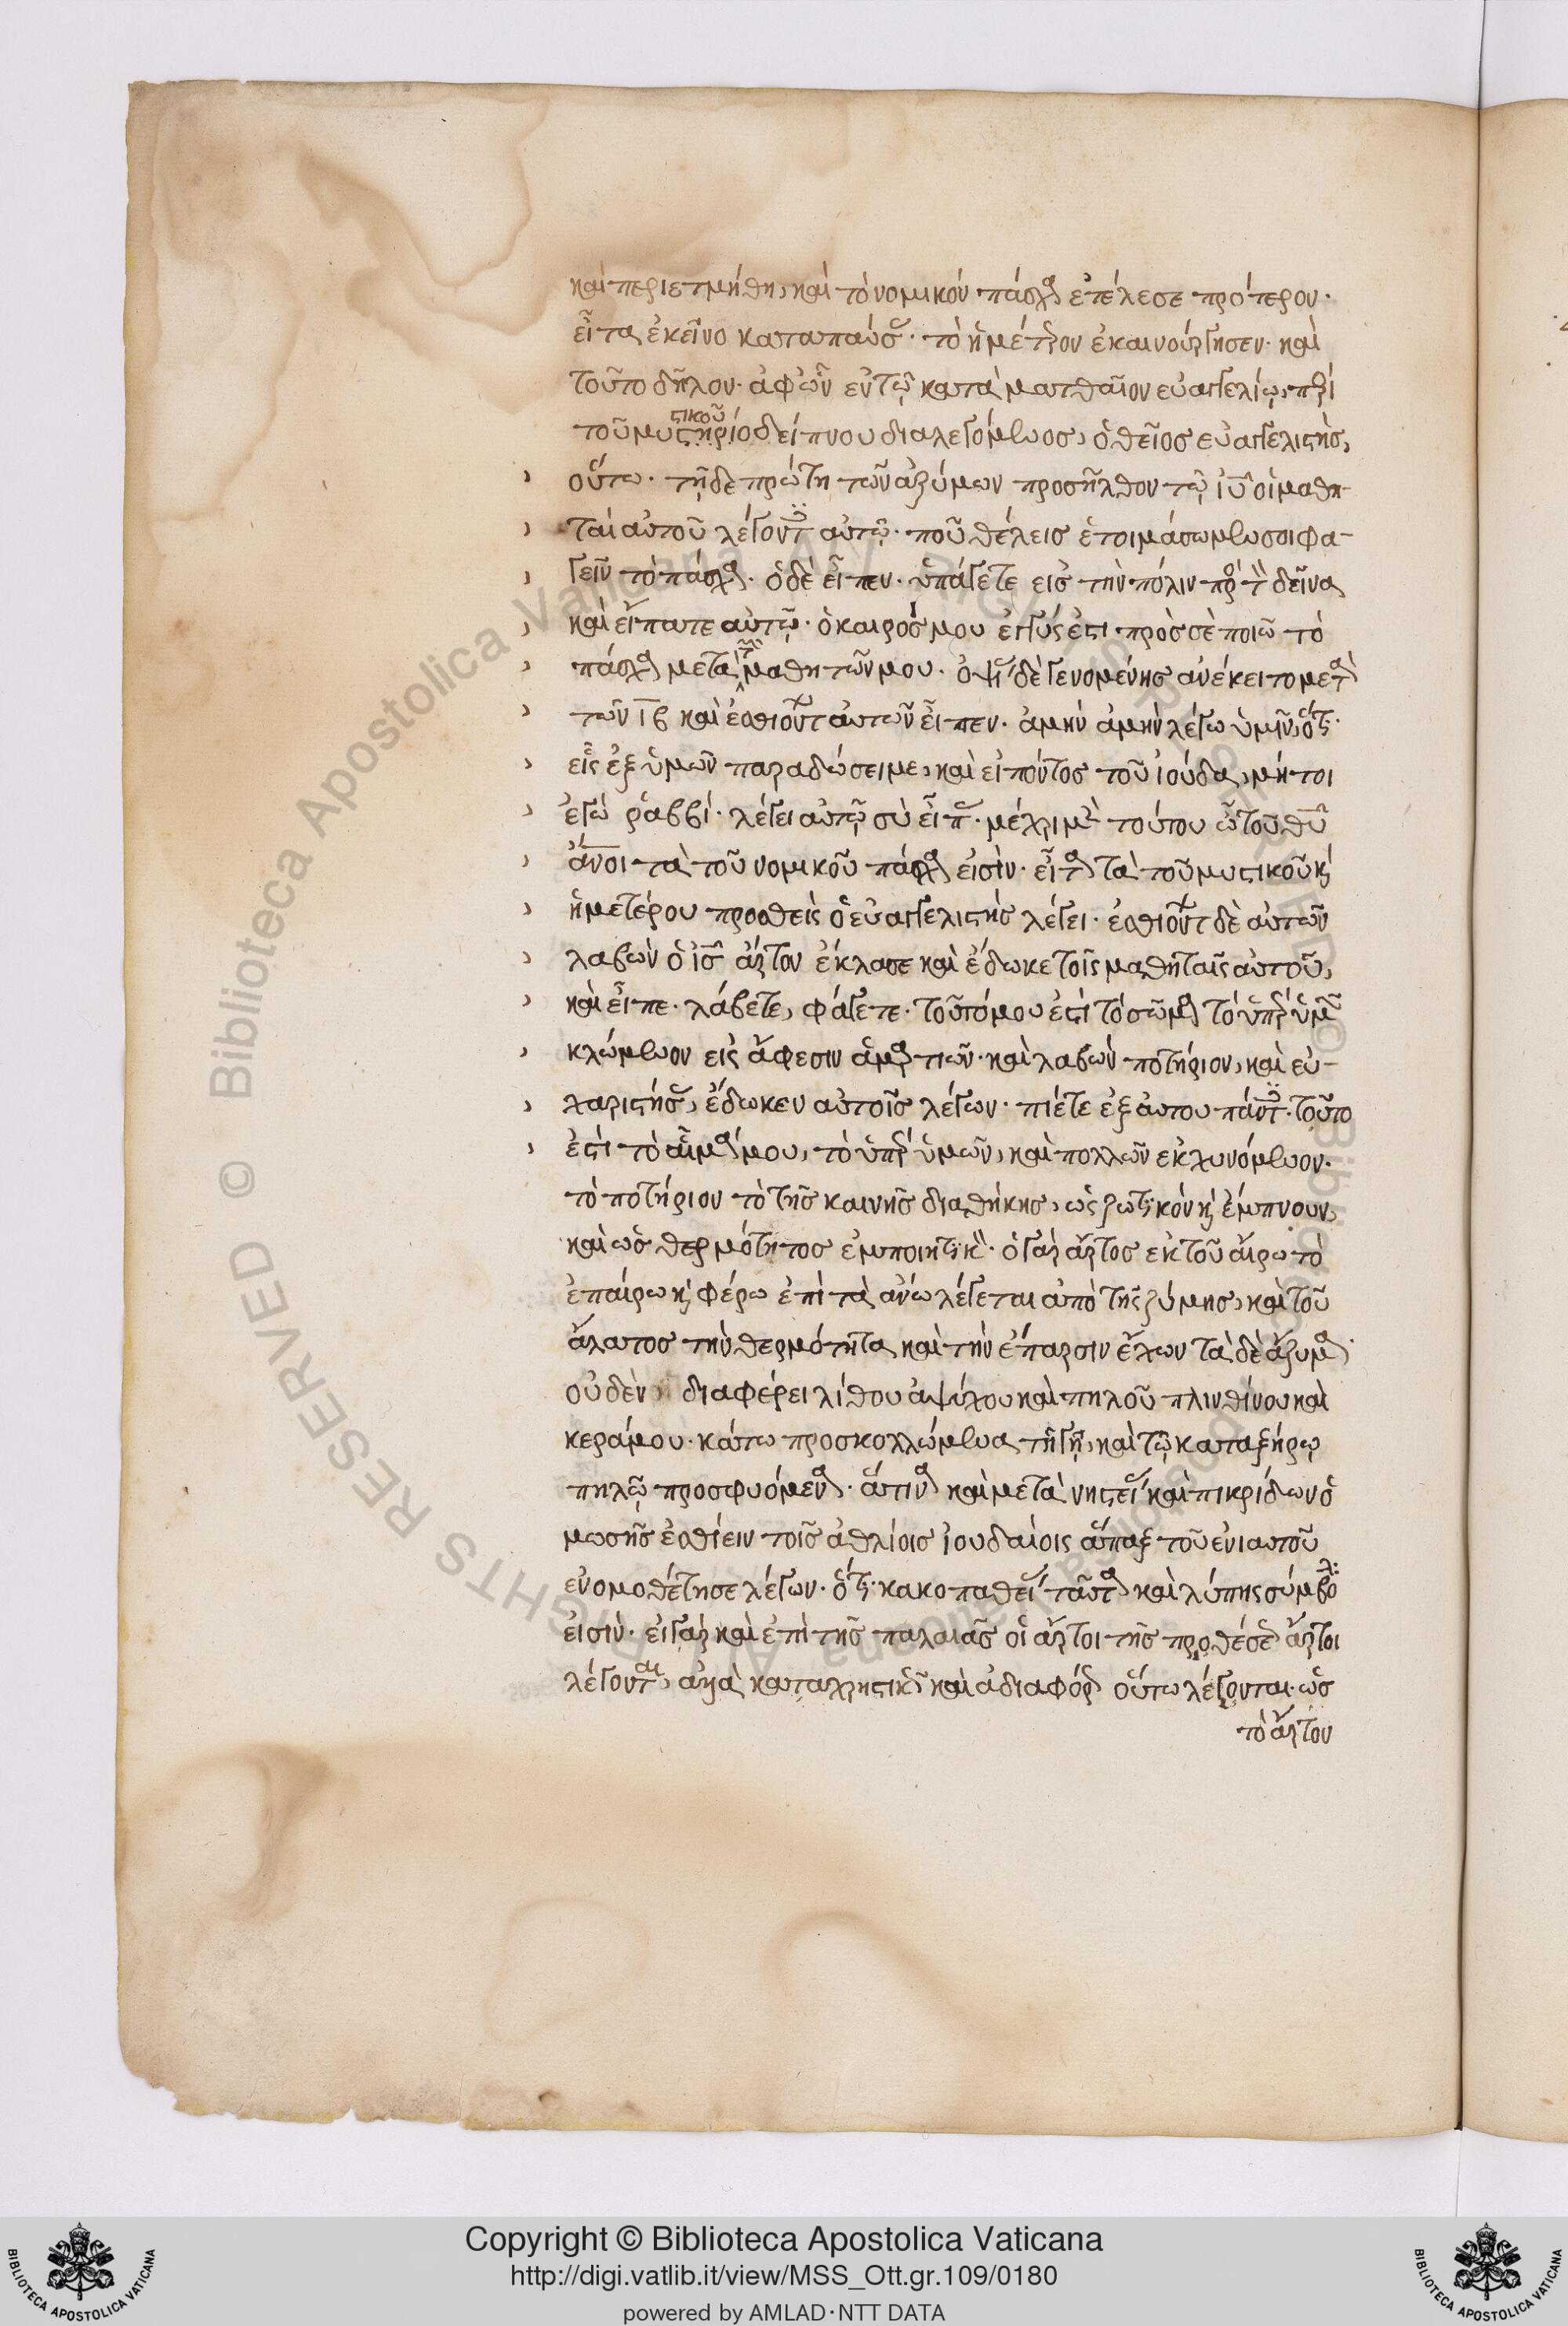 καὶ περιετμήθη, καὶ τὸ νομικὸν πάσχα ἐτέλεσε πρότερον·
εἶτα ἐκεῖνο καταπαύσας· τὸ ἡμέτερον ἐκαινούργησεν· καὶ
τοῦτο δῆλον· ἀφ' ὧν ἐν τῷ κατὰ ματθαῖον εὐαγγελίῳ, περὶ
τοῦ μυστικοῦ δείπνου διαλεγόμενος, ὁ θεῖος εὐαγγελιστὴς,
οὕτω· τῇ δὲ πρώτη τῶν ἀζύμων προσῆλθον τῷ ἰυ οἱ μαθη-
ταὶ αὐτοῦ λέγοντες αὐτῷ· ποῦ θέλεις ἑτοιμάσωμεν σοι φα-
γεῖν τὸ πάσχα· ὁ δὲ εἶπεν· ὑπάγετε εἰς τὴν πόλιν πρὸς τὸν δεῖνα
καὶ εἴπατε αὐτῷ· ὁ καιρός μου ἐγγύς ἐστι πρὸς σὲ ποιῶ τὸ
πάσχα μετὰ τῶν μαθητῶν μου· ὀψίας δὲ γενομένης ἀνέκειτο μετὰ
τῶν ιβ καὶ ἐσθιόντων αὐτῶν εἶπεν· ἀμὴν ἀμὴν λέγω ὑμῖν, ὅτι·
εἷς ἐξ ὑμῶν παραδώσει με, καὶ εἰπόντος τοῦ ἰούδα, μή τοι
ἐγώ ῥαββί· λέγει αὐτῷ σὺ εἶπας· μέχρι μὲν τούτου ὦ τοῦ θυ
ἄνοι τὰ τοῦ νομικοῦ πάσχα εἰσὶν· εἶτα τὰ τοῦ μυστικοῦ καὶ
ἡμετέρου προσθεὶς ὁ εὐαγγελιστὴς λέγει· ἐσθιόντων δὲ αὐτῶν
λαβὼν ὁ ἰς ἄρτον ἔκλασε καὶ ἐδωκε τοῖς μαθηταῖς αὐτοῦ,
καὶ εἶπε· λάβετε, φάγετε· τοῦτό μου ἐστὶ τὸ σῶμα τὸ ὑπὲρ ὑμῶν
κλώμενον εἰς ἄφεσιν ἁμαρτιῶν· καὶ λαβὼν ποτήριον, καὶ εὐ-
χαριστήσας, ἔδωκεν αὐτοῖς λέγων· πίετε ἐξ αὐτου πάντες· τοῦτο
ἐστὶ τὸ αἷμά μου, τὸ ὑπὲρ ὑμῶν, καὶ πολλῶν ἐκχυνόμενον·
τὸ ποτήριον τὸ τῆς καινῆς διαθήκης, ὡς ζωτικόν καὶ ἔμπνουν,
καὶ ὡς θερμότητος ἐμποιητικὸν· ὁ γὰρ ἄρτος ἐκ τοῦ αἴρω τὸ
ἐπαίρω καὶ φέρω ἐπὶ τὰ ἀνω λέγεται ἀπὸ τῆς ζύμης, καὶ τοῦ
ἅλατος τὴν θερμότητα καὶ τὴν ἔπαρσιν ἔχων τὰ δὲ ἄζυμα·
οὐδὲν διαφέρει λίθου ἀψύχου καὶ πηλοῦ πλινθίνου καὶ
κεράμου· κάτω προσκολλώμενα τῇ γῇ, καὶ τῷ καταξήρῳ
πηλῷ προσφυόμενα· ἅτινα καὶ μετὰ νηστείας καὶ πικρίδων ὁ
μωσῆς ἐσθίειν τοῖς ἀθλίοις ἰουδαίοις ἅπαξ τοῦ ἐνιαυτοῦ
ἐνομοθέτησε λέγων· ὅτι· κακοπαθείας ταῦτα καὶ λύπης σύμβολα
εἰσὶν· εἰ γὰρ καὶ ἐπὶ τῆς παλαιᾶς οἱ ἄρτοι τῆς προθέσεως ἄρτοι
λέγονται, ἀλλὰ καταχρηστικῶς καὶ ἀδιαφόρως οὕτω λέγονται· ὡς
τὸ ἄρτον
Biblioteca Apostolica Vaticana ALL RIGHTS RESERVED ©
Copyright © Biblioteca Apostolica Vaticana
http://digi.vatlib.it/view/MSS_Ott.gr.109/0180
powered by AMLAD·NTT DATA
BIBLIOTECA APOSTOLICA VATICANA
BIBLIOTECA APOSTOLICA VATICANA